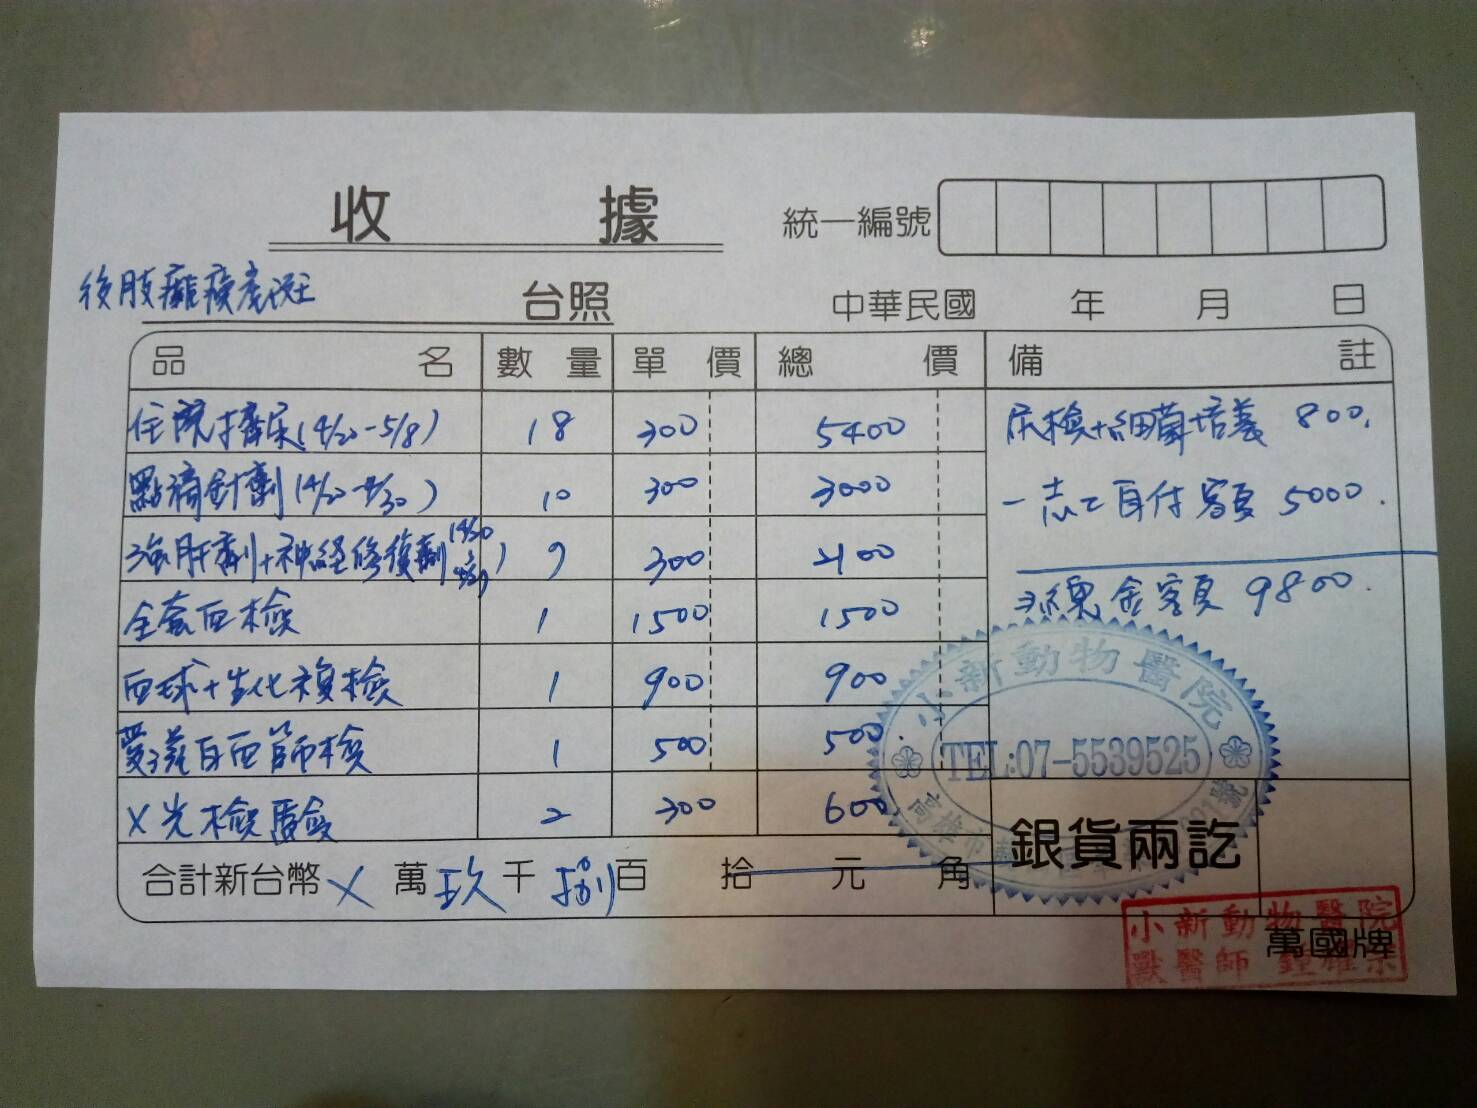 收據
統一編號
後肢癱瘓虎斑
台照
中華民國 年 月 日
品名 數量 單價 總價 備註
住院擠尿(4/20-5/8) 18 300 5400
尿檢+細菌培養 800.
點滴針劑(4/20-4/30) 10 300 3000
一志工自付額 5000.
強肝劑+神經修復劑 300 2100
總金額 9800.
全套血檢 1 1500 1500
血球+生化複檢 1 900 900
愛滋白血篩檢 1 500 500.
X光檢驗 2 300 600
小新動物醫院
TEL:07-5539525
高雄市
合計新台幣 X 萬 玖 千 捌 百 拾 元 角
銀貨兩訖
小新動物醫院
獸醫師
萬國牌